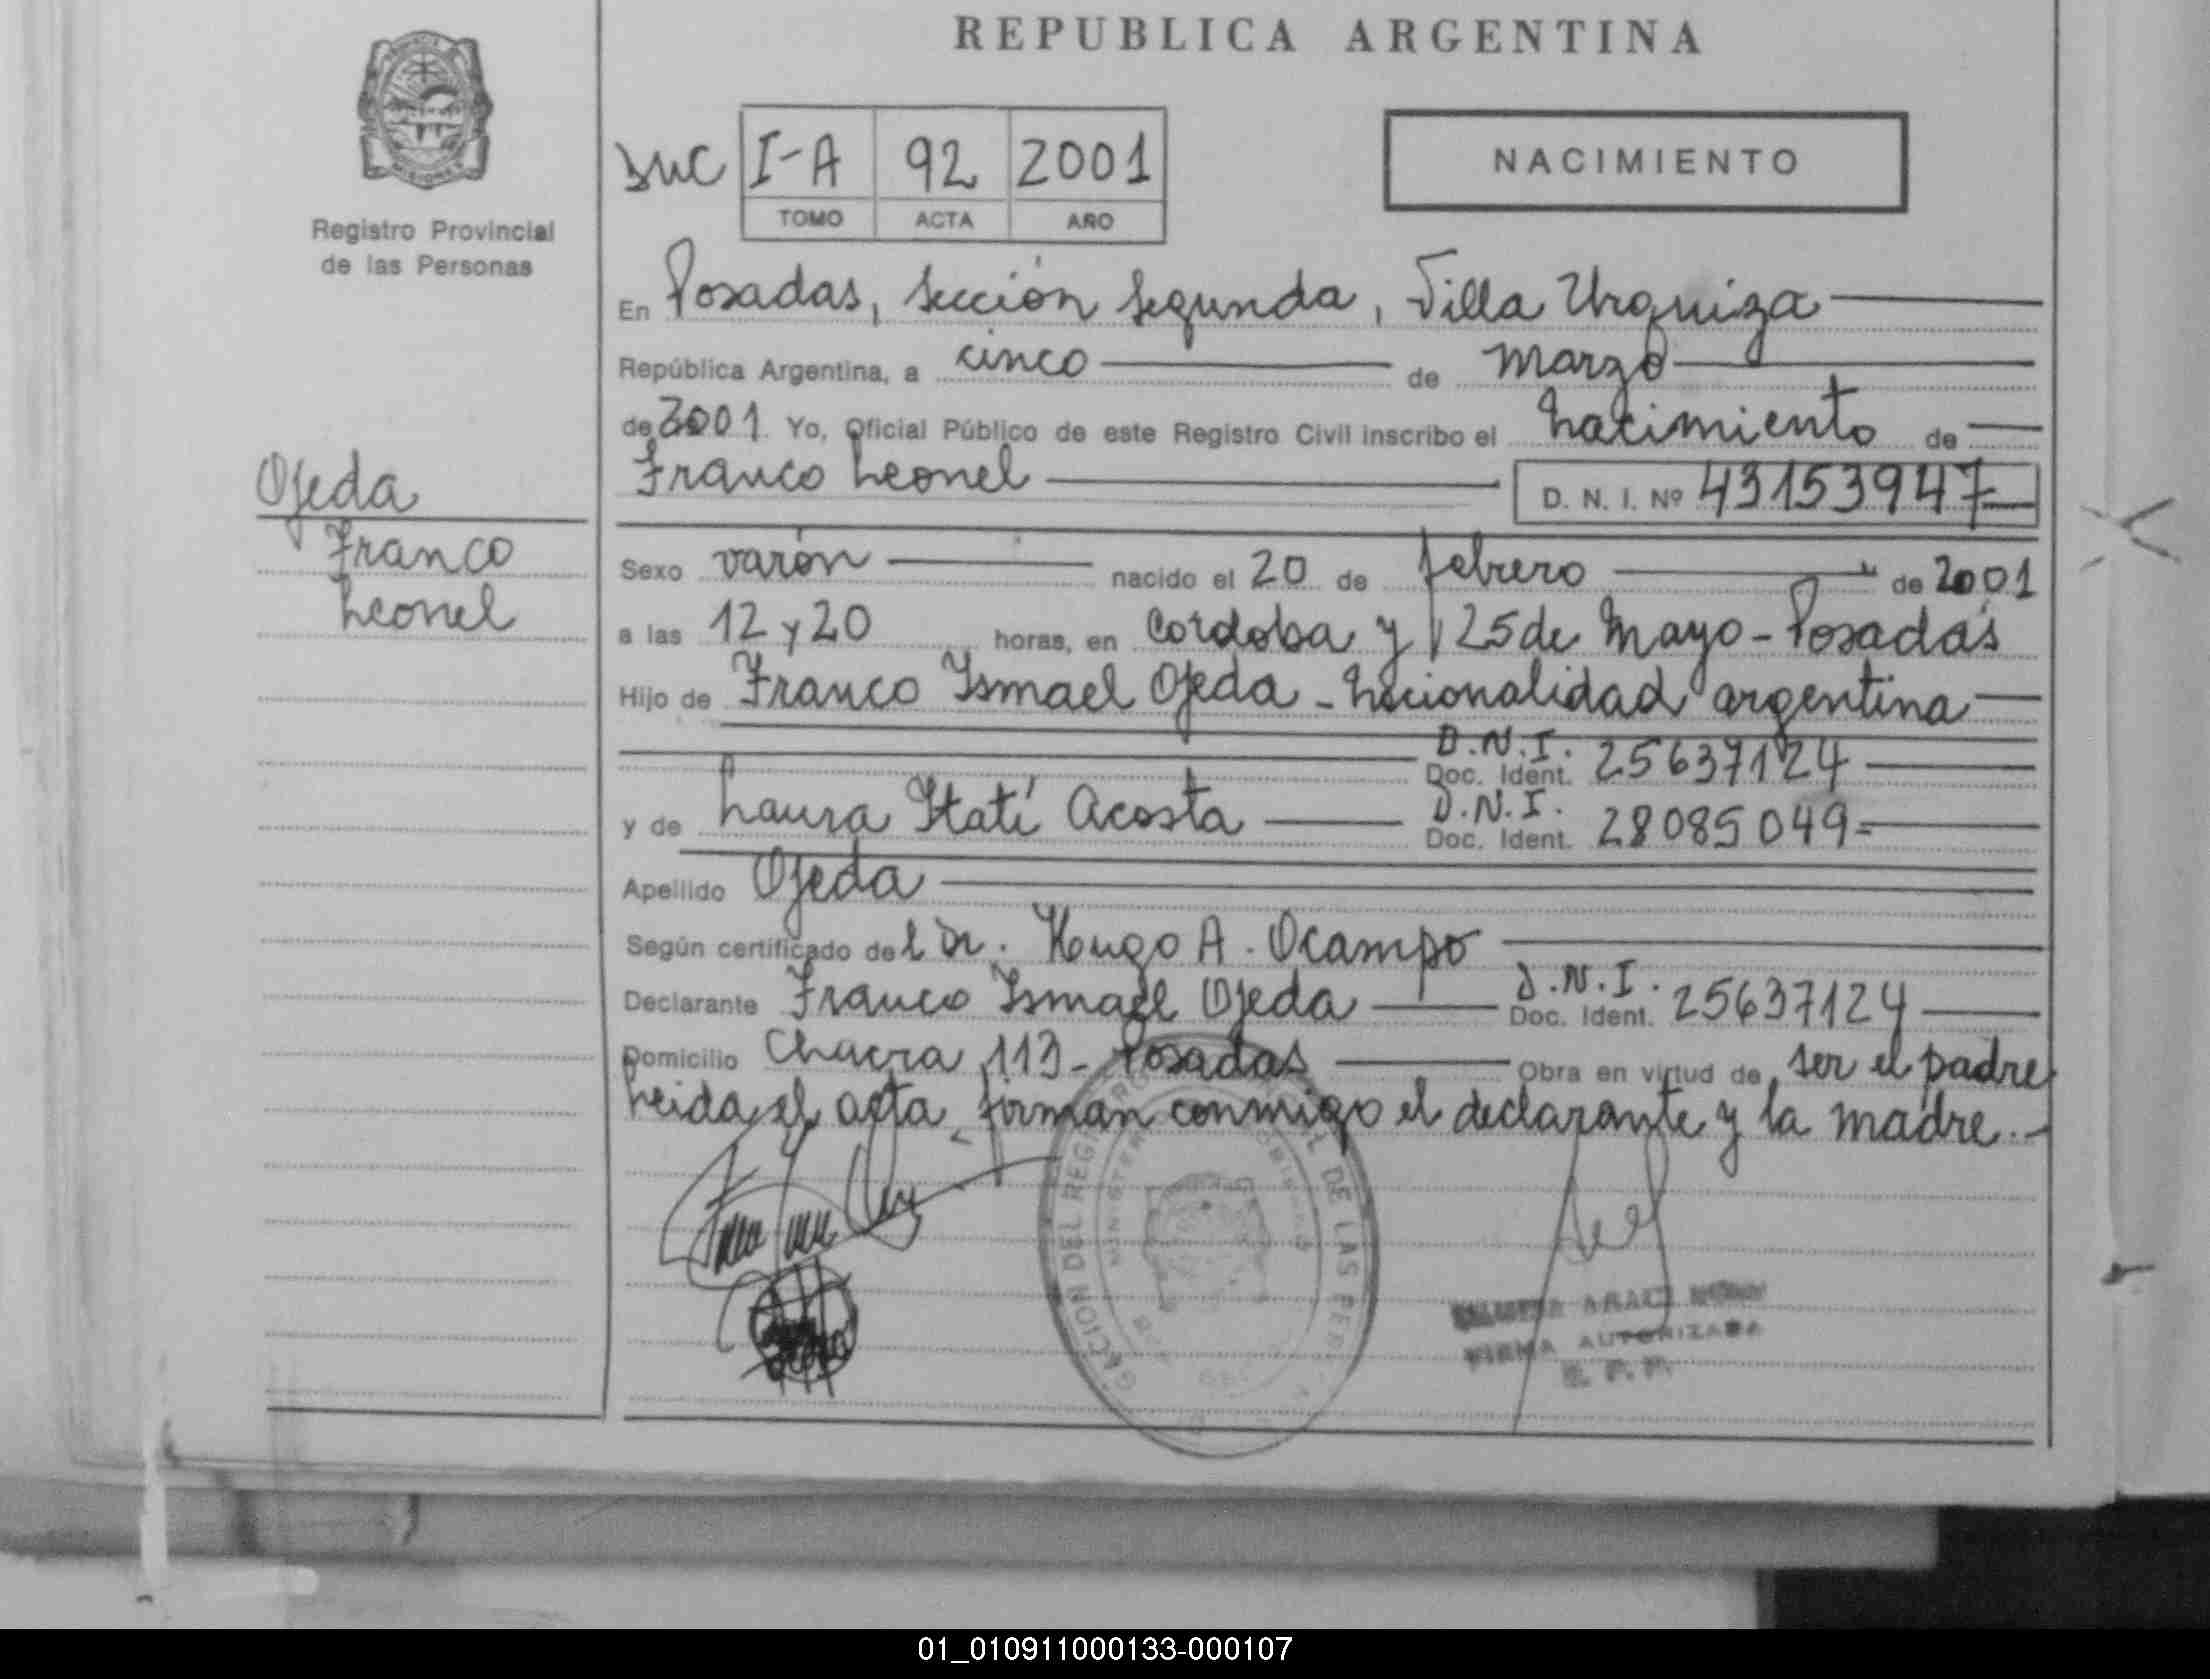 REPUBLICA ARGENTINA
Registro Provincial
de las Personas
suc I-A 92 2001
TOMO ACTA AÑO
NACIMIENTO
En Posadas, Sección Segunda, Villa Urquiza
República Argentina, a cinco de Marzo
de 2001 Yo, Oficial Público de este Registro Civil inscribo el Nacimiento de
Franco Leonel D. N. I. Nº 43153947
Ojeda
Franco
Leonel
Sexo varón nacido el 20 de febrero de 2001
a las 12 y 20 horas, en Córdoba y 25 de Mayo - Posadas
Hijo de Franco Ismael Ojeda - Nacionalidad argentina
D.N.I.
Doc. Ident. 25637124
y de Laura Itatí Acosta D.N.I.
Doc. Ident. 28085049
Apellido Ojeda
Según certificado del Dr. Hugo A. Ocampo
Declarante Franco Ismael Ojeda D.N.I.
Doc. Ident. 25637124
Domicilio Chacra 113 - Posadas Obra en virtud de ser el padre
Leida el acta firman conmigo el declarante y la madre.-
FIRMA AUTORIZADA
01_010911000133-000107